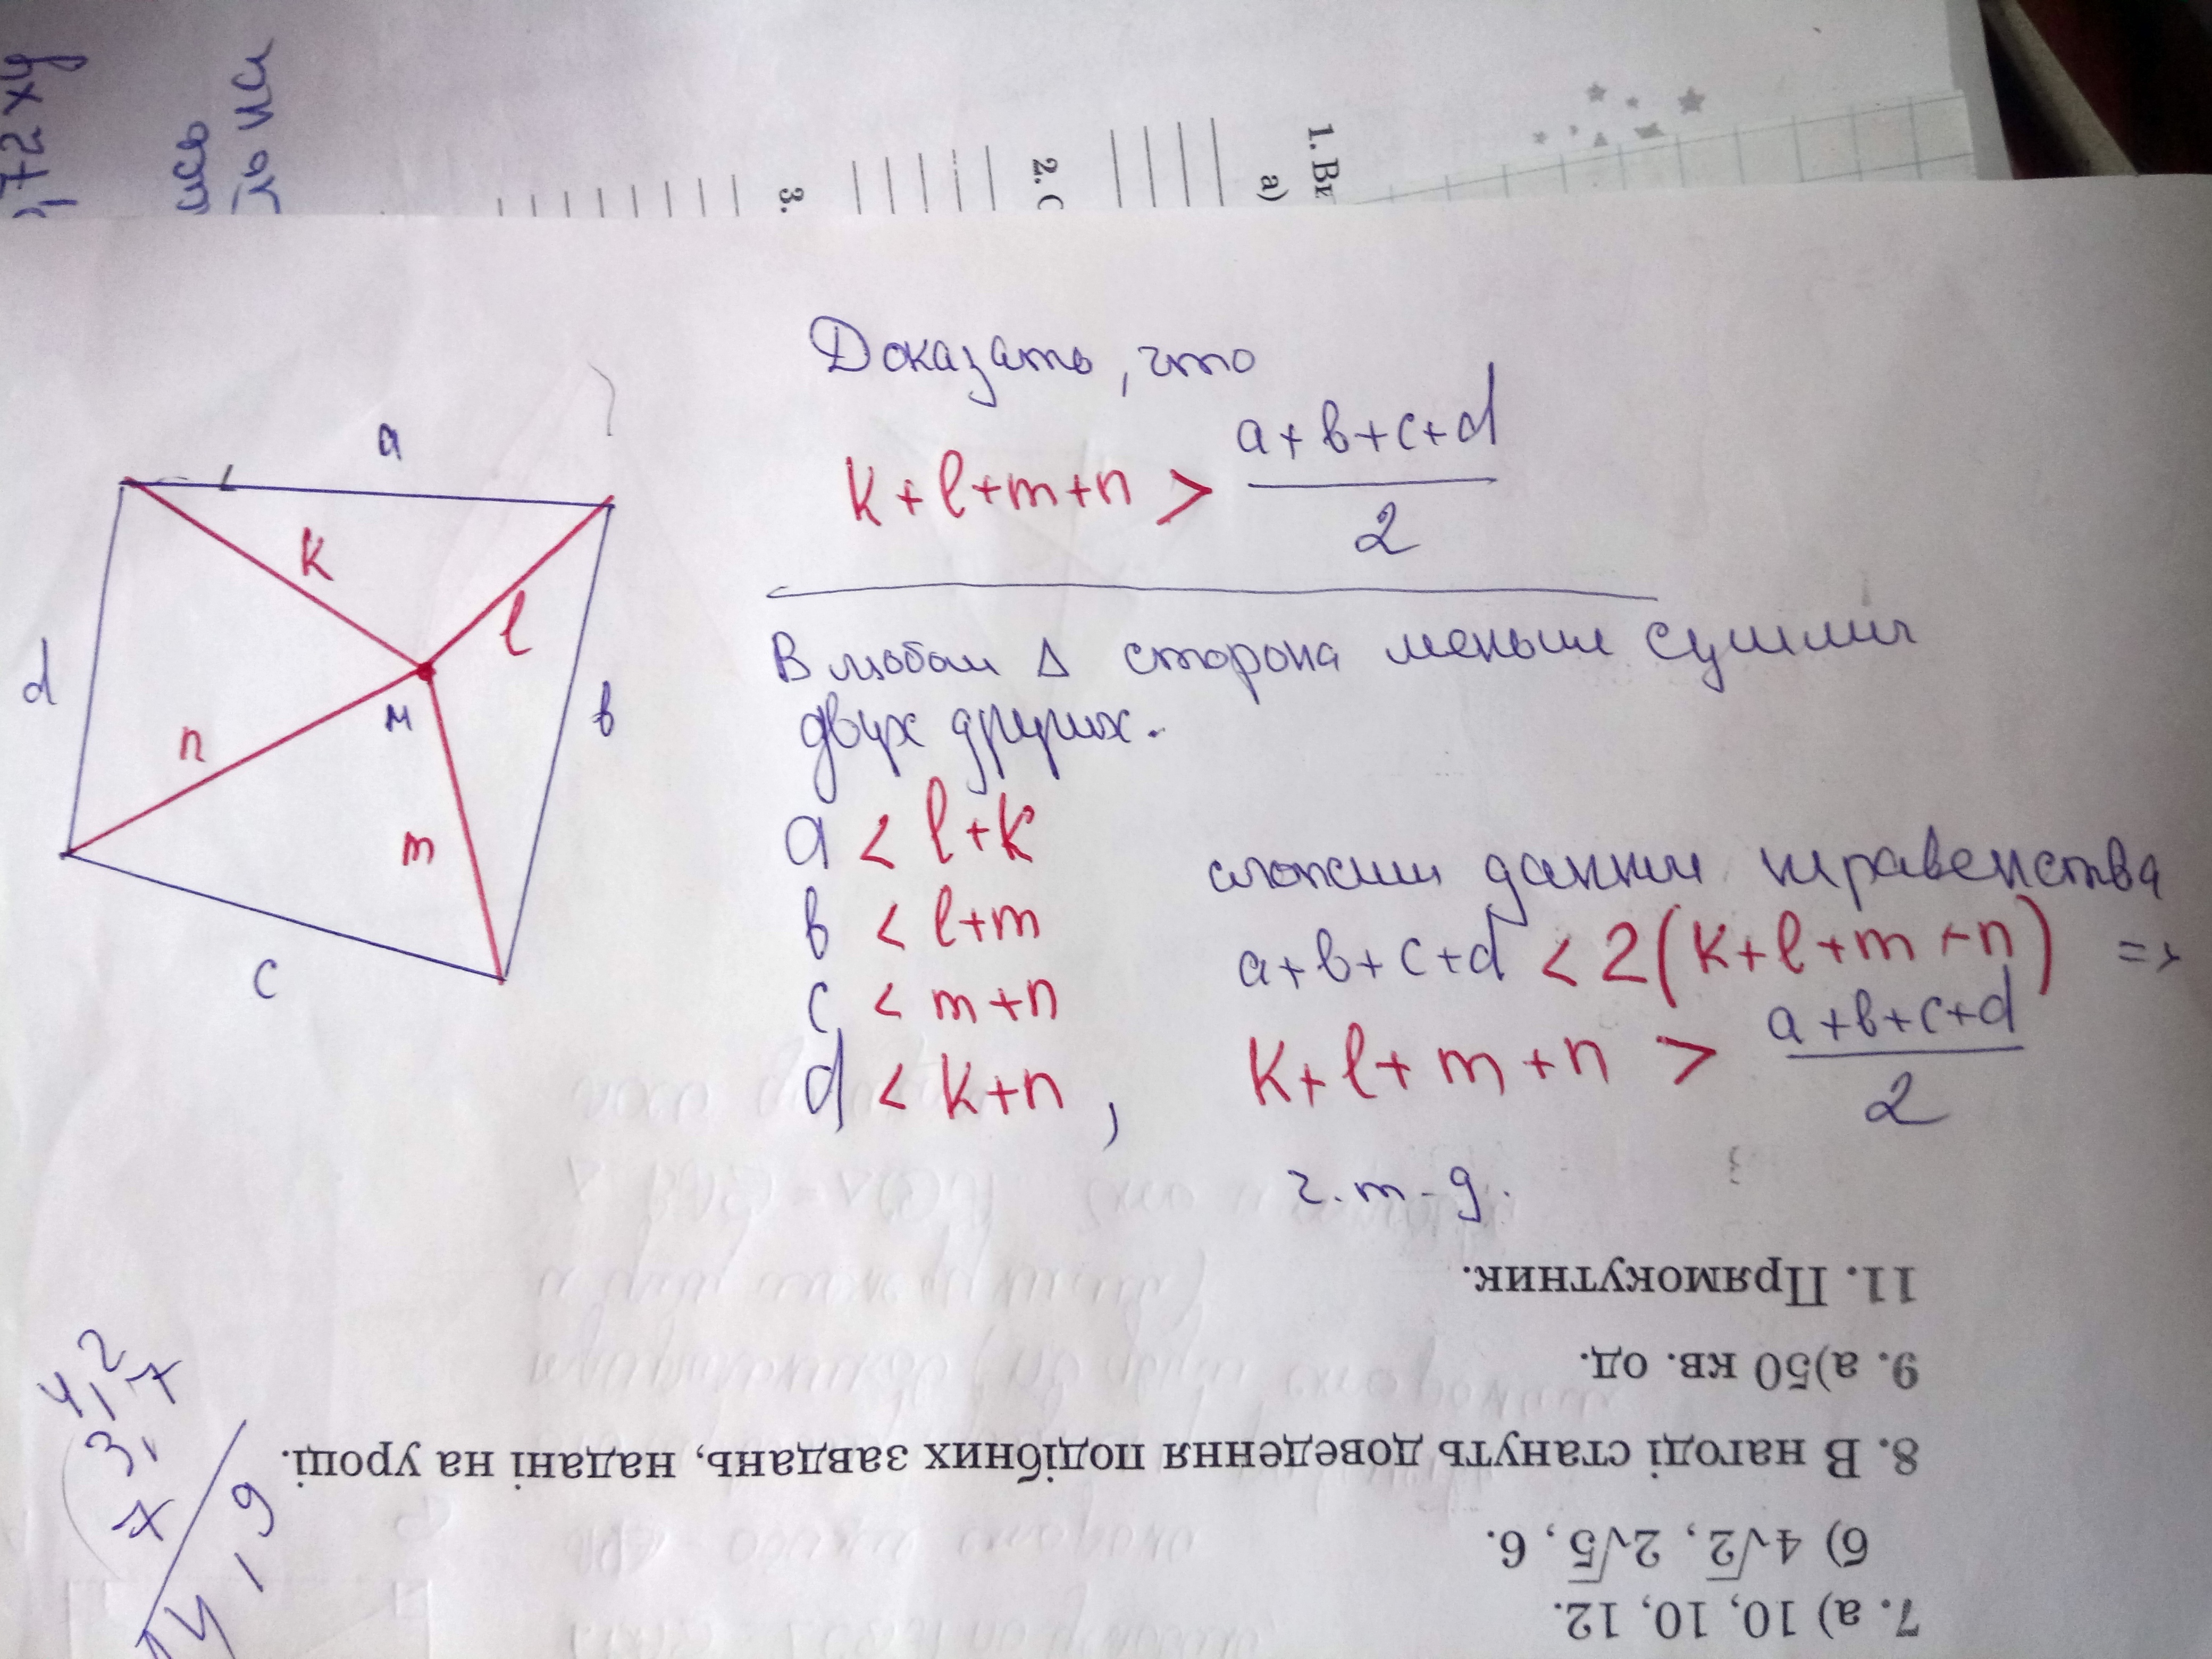 ,72xy
ись
1. Ви
а)
2. С
3.
Доказать, что
k+l+m+n > (a+b+c+d)/2
a
k
l
d
м
b
n
m
c
В любом Δ сторона меньше суммы
двух других.
a < l+k
b < l+m
c < m+n
d < k+n ,
сложим данные неравенства
a+b+c+d < 2(k+l+m+n) =>
k+l+m+n > (a+b+c+d)/2
ч.т.д.
11. Прямокутник.
9. а)50 кв. од.
8. В нагоді стануть доведення подібних завдань, надані на уроці.
б) 4√2, 2√5, 6.
7. а) 10, 10, 12.